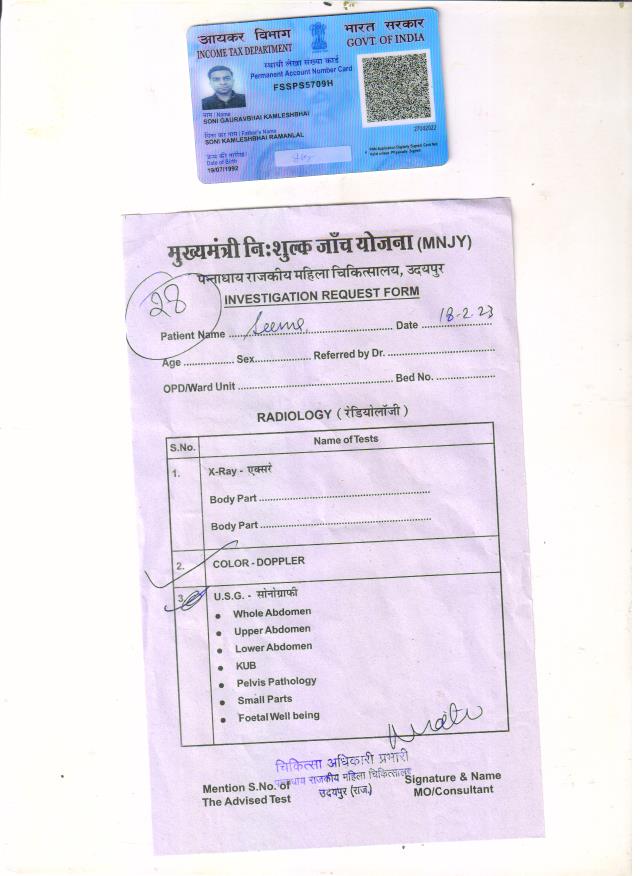 आयकर विभाग
INCOME TAX DEPARTMENT
भारत सरकार
GOVT. OF INDIA
स्थायी लेखा संख्या कार्ड
Permanent Account Number Card
FSSPS5709H
नाम / Name
SONI GAURAVBHAI KAMLESHBHAI
पिता का नाम / Father's Name
SONI KAMLESHBHAI RAMANLAL
जन्म की तारीख /
Date of Birth
19/07/1992
27032022
PAN Application Digitally Signed, Card Not
Valid unless Physically Signed
मुख्यमंत्री निःशुल्क जाँच योजना (MNJY)
पन्नाधाय राजकीय महिला चिकित्सालय, उदयपुर
28
INVESTIGATION REQUEST FORM
Patient Name Seeme Date 18-2-23
Age Sex Referred by Dr.
OPD/Ward Unit Bed No.
RADIOLOGY ( रेडियोलॉजी )
S.No. Name of Tests
1. X-Ray - एक्सरे
Body Part
Body Part
2. COLOR - DOPPLER
3. U.S.G. - सोनोग्राफी
• Whole Abdomen
• Upper Abdomen
• Lower Abdomen
• KUB
• Pelvis Pathology
• Small Parts
• Foetal Well being
चिकित्सा अधिकारी प्रभारी
पन्नाधाय राजकीय महिला चिकित्सालय
उदयपुर (राज.)
Mention S.No. of
The Advised Test
Signature & Name
MO/Consultant